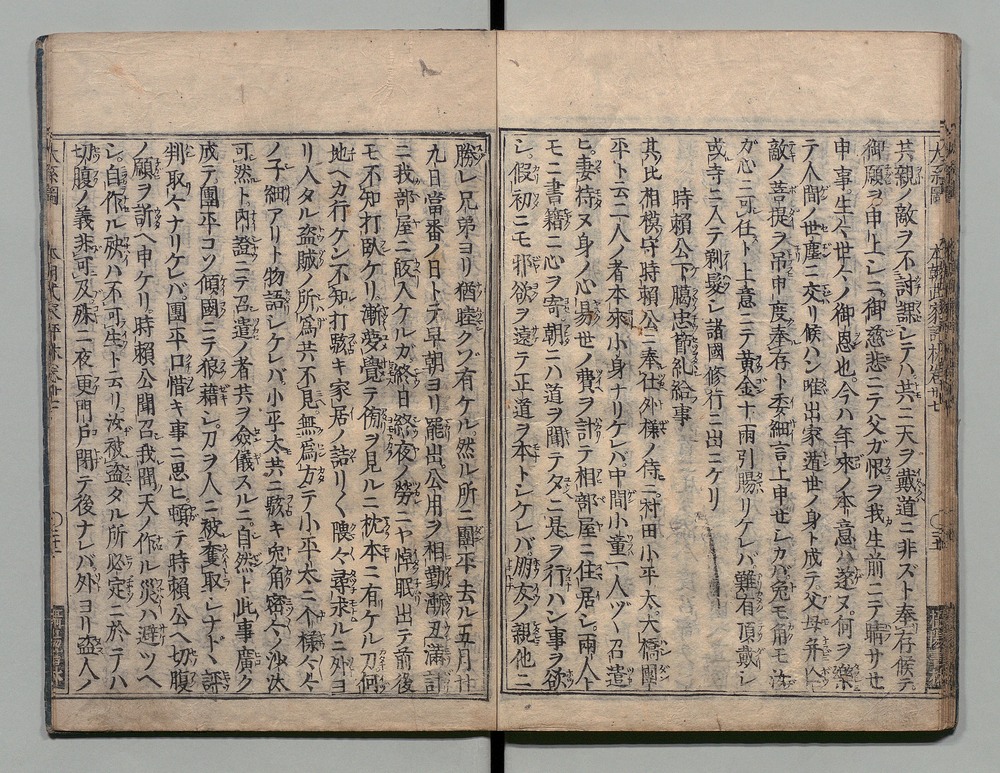 共親ノ敵ヲ不討課シテハ共ニ天ヲ戴道ニ非ズト奉存候テ
御願ヲ申上シニ御慈悲ニテ父ガ恨ヲ我生前ニテ晴サセ
申事生々世々ノ御恩也今ハ年來ノ本意ハ遂ヌ何ヲ樂
テ人間ノ世塵ニ交リ候ハン唯出家遁世ノ身ト成テ父母并ニ
敵ノ菩提ヲ吊申度奉存ト委細言上申セシカバ宛モ角モ汝
ガ心ニ可任ト上意ニテ黄金十兩引賜リケレバ難有頂戴シ
或寺ニ入テ剃髪シ諸國修行ニ出ニケリ
時頼公下﨟忠節糺給事
其比相模守時頼公ニ奉仕外様ノ侍ニ村田小平太大橋團
平ト云二人ノ者本來小身ナリケレバ中間小童一人ヅヽ召遣
ヒ妻持ヌ身ノ心易世ノ費ヲ計テ相部屋ニ住居シ兩人ト
モニ書籍ニ心ヲ寄朝ニハ道ヲ聞テタニ是ヲ行ハン事ヲ欲
シ假初ニモ邪欲ヲ遠テ正道ヲ本トシケレバ朋友ノ親他ニ
勝レ兄弟ヨリ猶睦クゾ有ケル然ル所ニ團平去ル五月廿
九日當番ノ日トテ早朝ヨリ罷出公用ヲ相勤漸丑満計
ニ我部屋ニ皈入ケルガ終日終夜ノ勞ニヤ悼眠出テ前後
モ不知打臥ケリ漸夢覺テ傍ヲ見ルニ枕本ニ有ケル刀何
地ヘカ行ケン不知打駭キ家居ノ詰リ〱隈々尋求ルニ外ヨ
リ入タル盗賊ノ所爲共不見無爲方テ小平太ニ个様々々
ノ子細アリト物語シケレバ小平太共ニ駭キ宛角密々ノ沙汰
可然ト内證ニテ召遣ノ者共ヲ僉儀スルニ自然ト此事廣ク
成テ團平コソ傾國ニテ狼藉シ刀ヲ人ニ被奪取シナドヽ評
判取々ナリケレバ團平口惜キ事ニ思ヒ頓テ時頼公ヘ切腹
ノ願ヲ訴ヘ申ケリ時頼公聞召我聞天ノ作ル災ハ避ツベ
シ自作ル殃ハ不可生ト云リ汝被盗タル所必定ニ於テハ
切腹ノ義非可及殊ニ夜更門戸閉テ後ナレバ外ヨリ盗人ノ